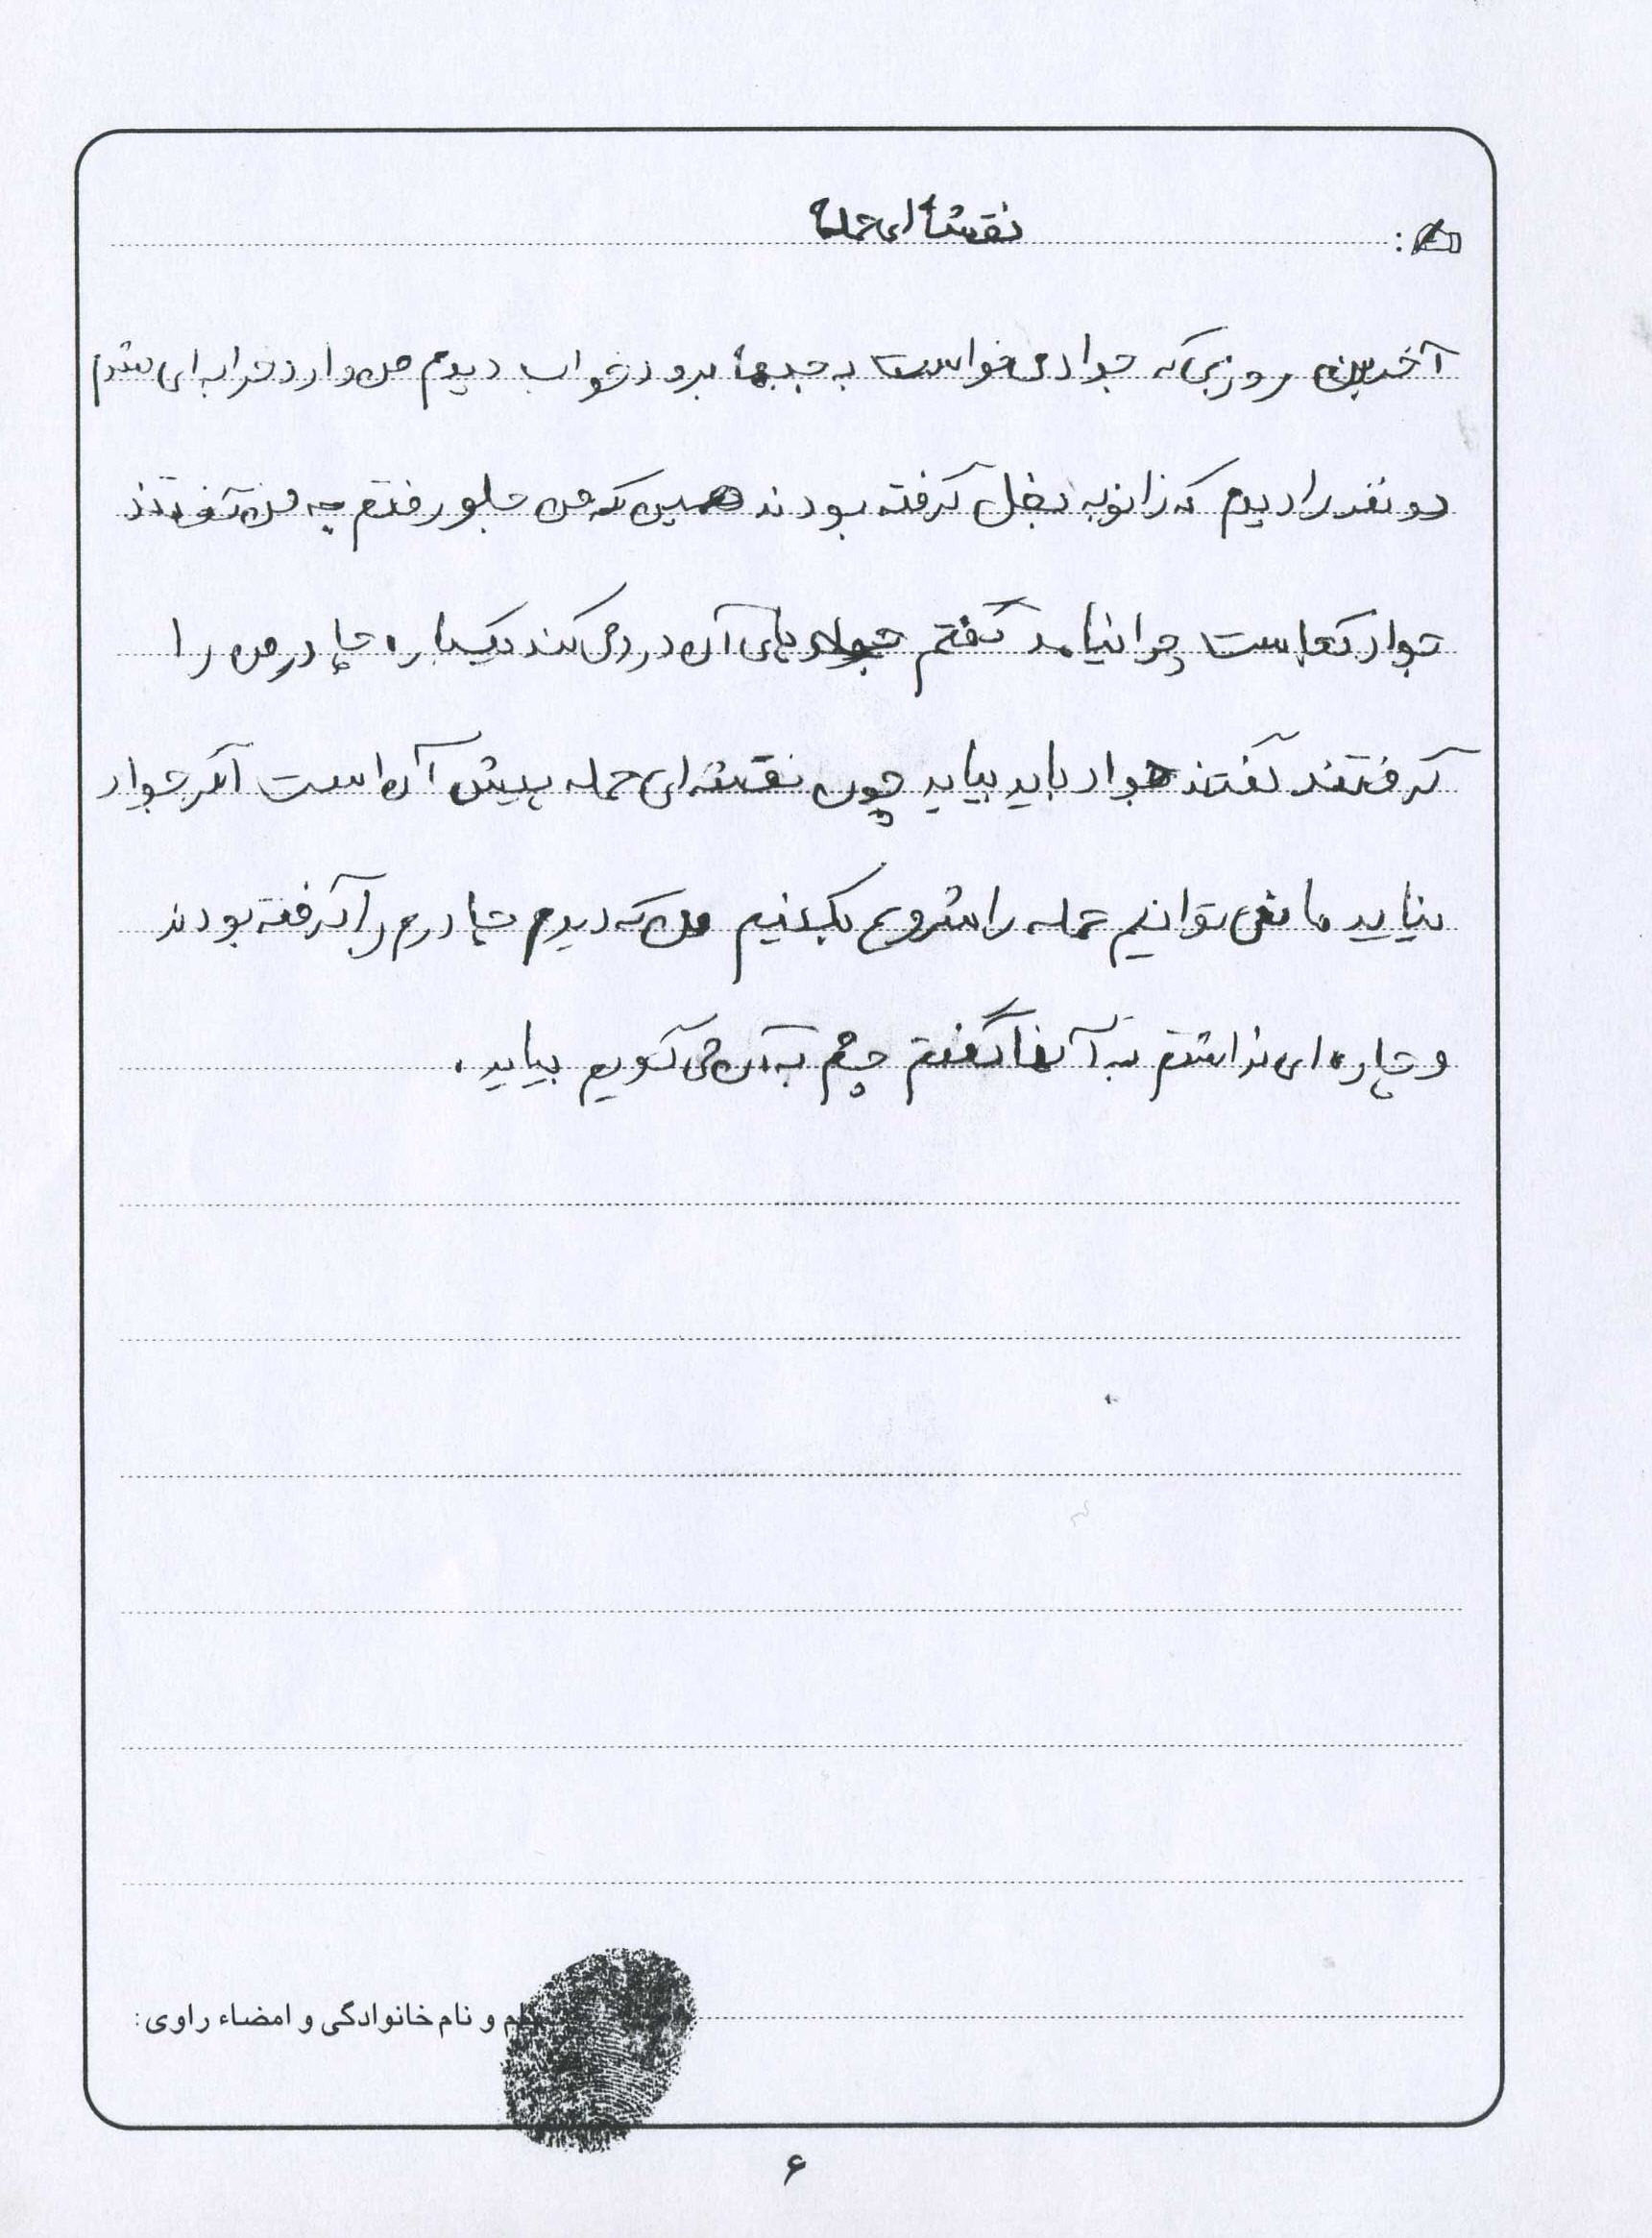 نقشه ای حمله
آخرین روزی که جواد می خواست به جبهه برود خواب دیدم من وارد خرابه ای شدم
دو نفر را دیدم که زانو به بغل گرفته بودند همین که من جلو رفتم به من گفتند
جواد کجاست چرا نیامد گفتم جواد پای آن درد می کند یکباره چادر من را
گرفتند گفتند جواد باید بیاید چون نقشه ای حمله پیش آن است اگر جواد
نیاید ما نمی توانیم حمله را شروع بکنیم من که دیدم چادرم را گرفته بودند
و چاره ای نداشتم به آنها گفتم چشم به آن می گویم بیاید.
نام و نام خانوادگی و امضاء راوی:
۶